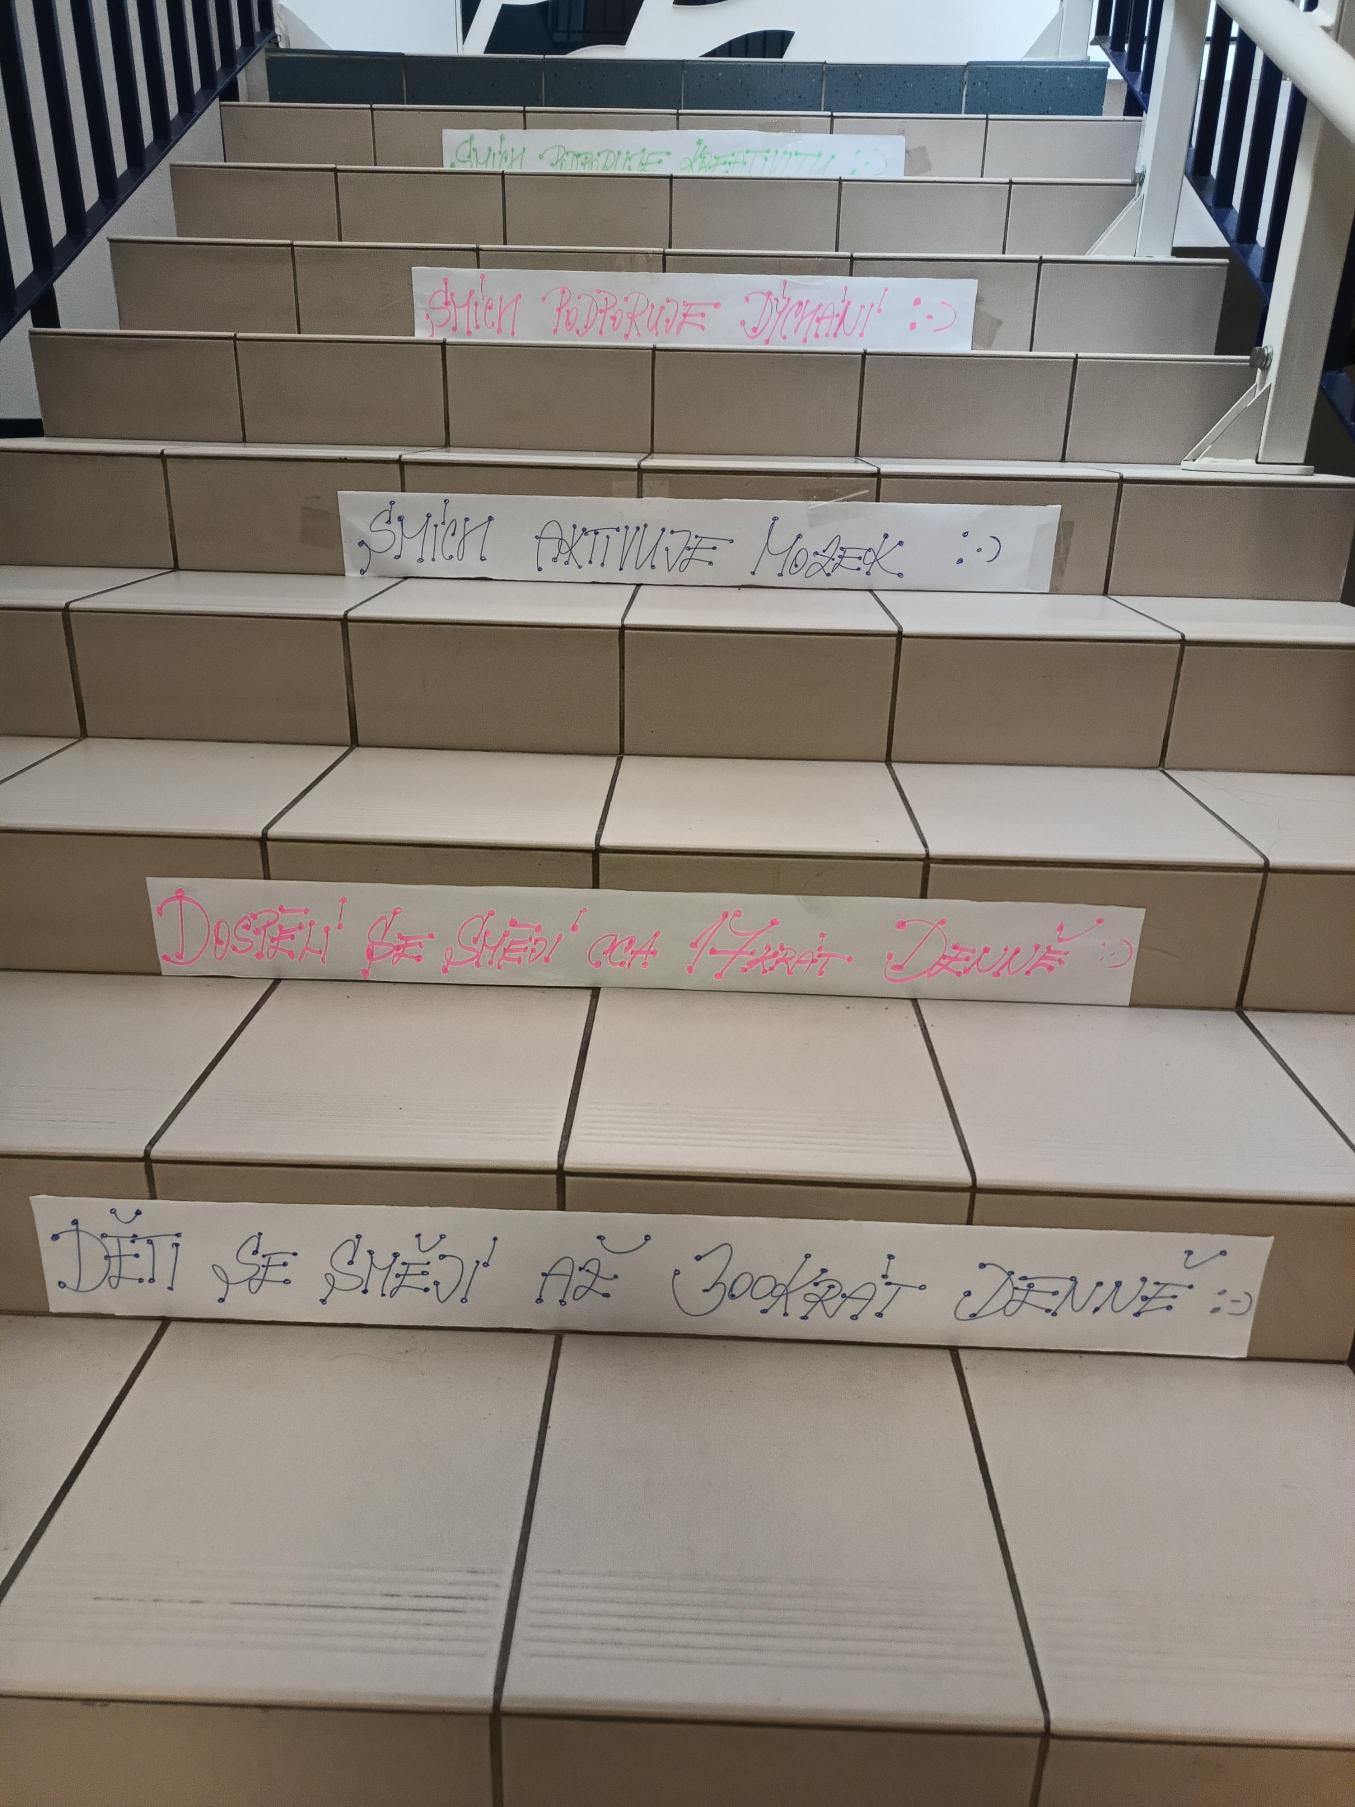 SMÍCH PODPORUJE KREATIVITU :-)
SMÍCH PODPORUJE DÝCHÁNÍ :-)
SMÍCH AKTIVUJE MOZEK :-)
DOSPĚLÍ SE SMĚJÍ CCA 17KRÁT DENNĚ :-)
DĚTI SE SMĚJÍ AŽ 300KRÁT DENNĚ :-)